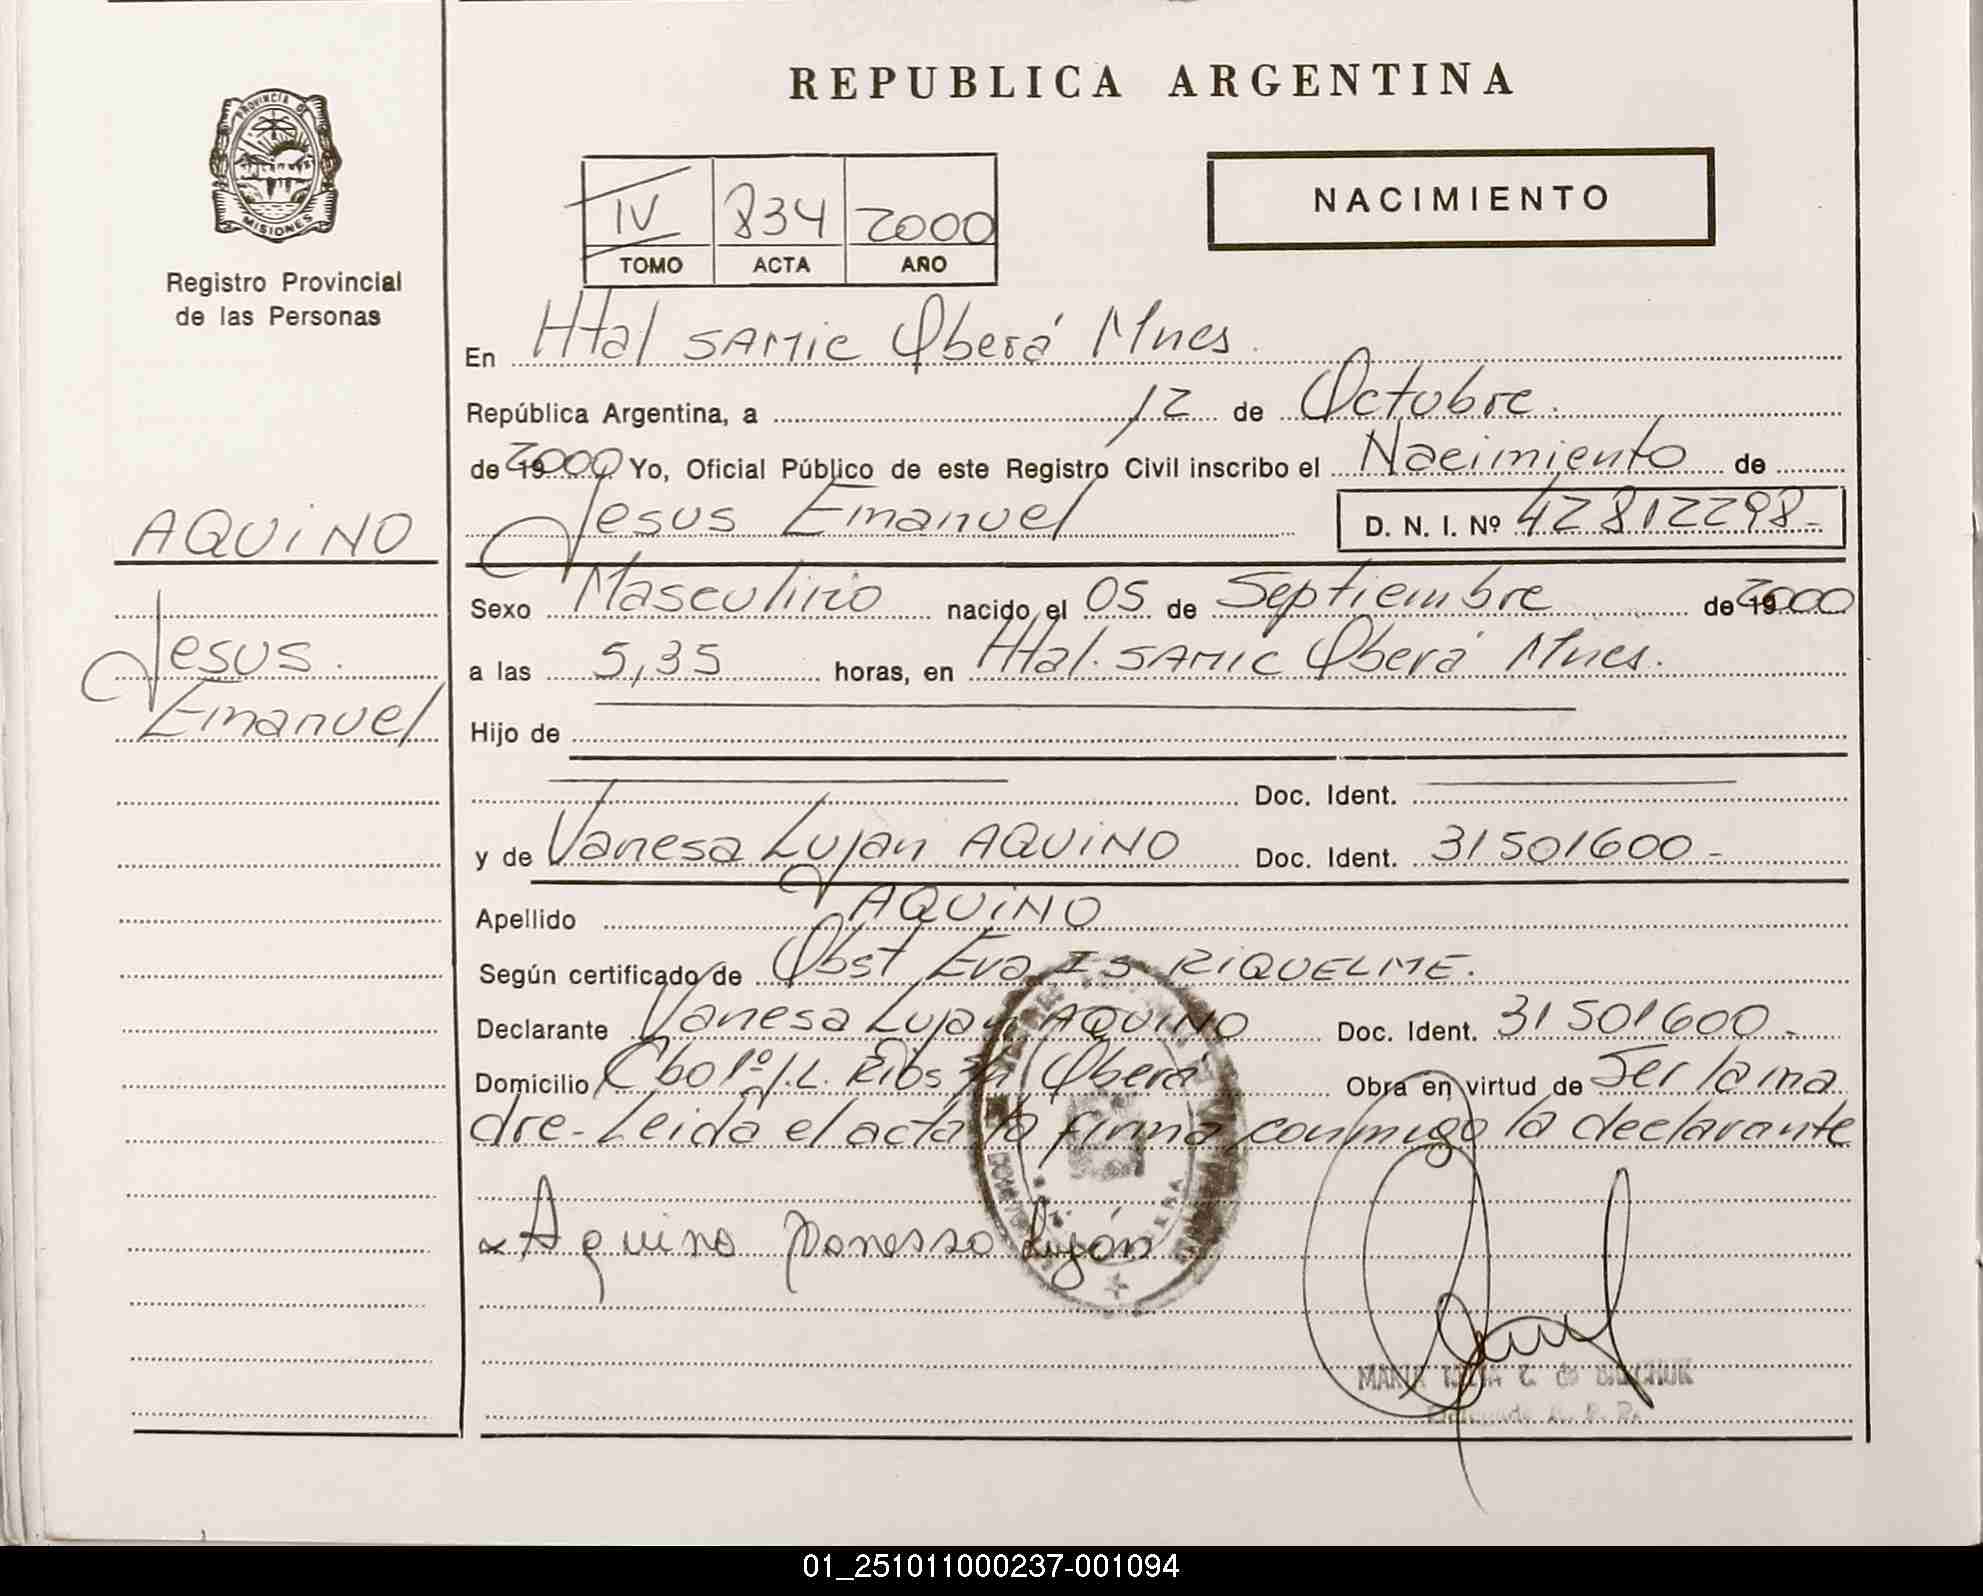 REPUBLICA ARGENTINA
PROVINCIA DE
MISIONES
Registro Provincial
de las Personas
IV 834 2000
TOMO ACTA AÑO
NACIMIENTO
En Htal SAMIC Oberá Mnes.
República Argentina, a 12 de Octubre.
de 2000 Yo, Oficial Público de este Registro Civil inscribo el Nacimiento de
Jesus Emanuel D. N. I. Nº 42812298-
AQUINO
Jesus.
Emanuel
Sexo Masculino nacido el 05 de Septiembre de 2000
a las 5,35 horas, en Htal. SAMIC Oberá Mnes.
Hijo de
Doc. Ident.
y de Vanesa Lujan AQUINO Doc. Ident. 31501600-
Apellido AQUINO
Según certificado de Obst Eva Is RIQUELME.
Declarante Vanesa Lujan AQUINO Doc. Ident. 31501600-
Domicilio Cbo 1º J.L. Rios Oberá Obra en virtud de Ser la ma
dre- Leida el acta la firma conmigo la declarante
Aquino Vanessa Luján
MARIA
01_251011000237-001094